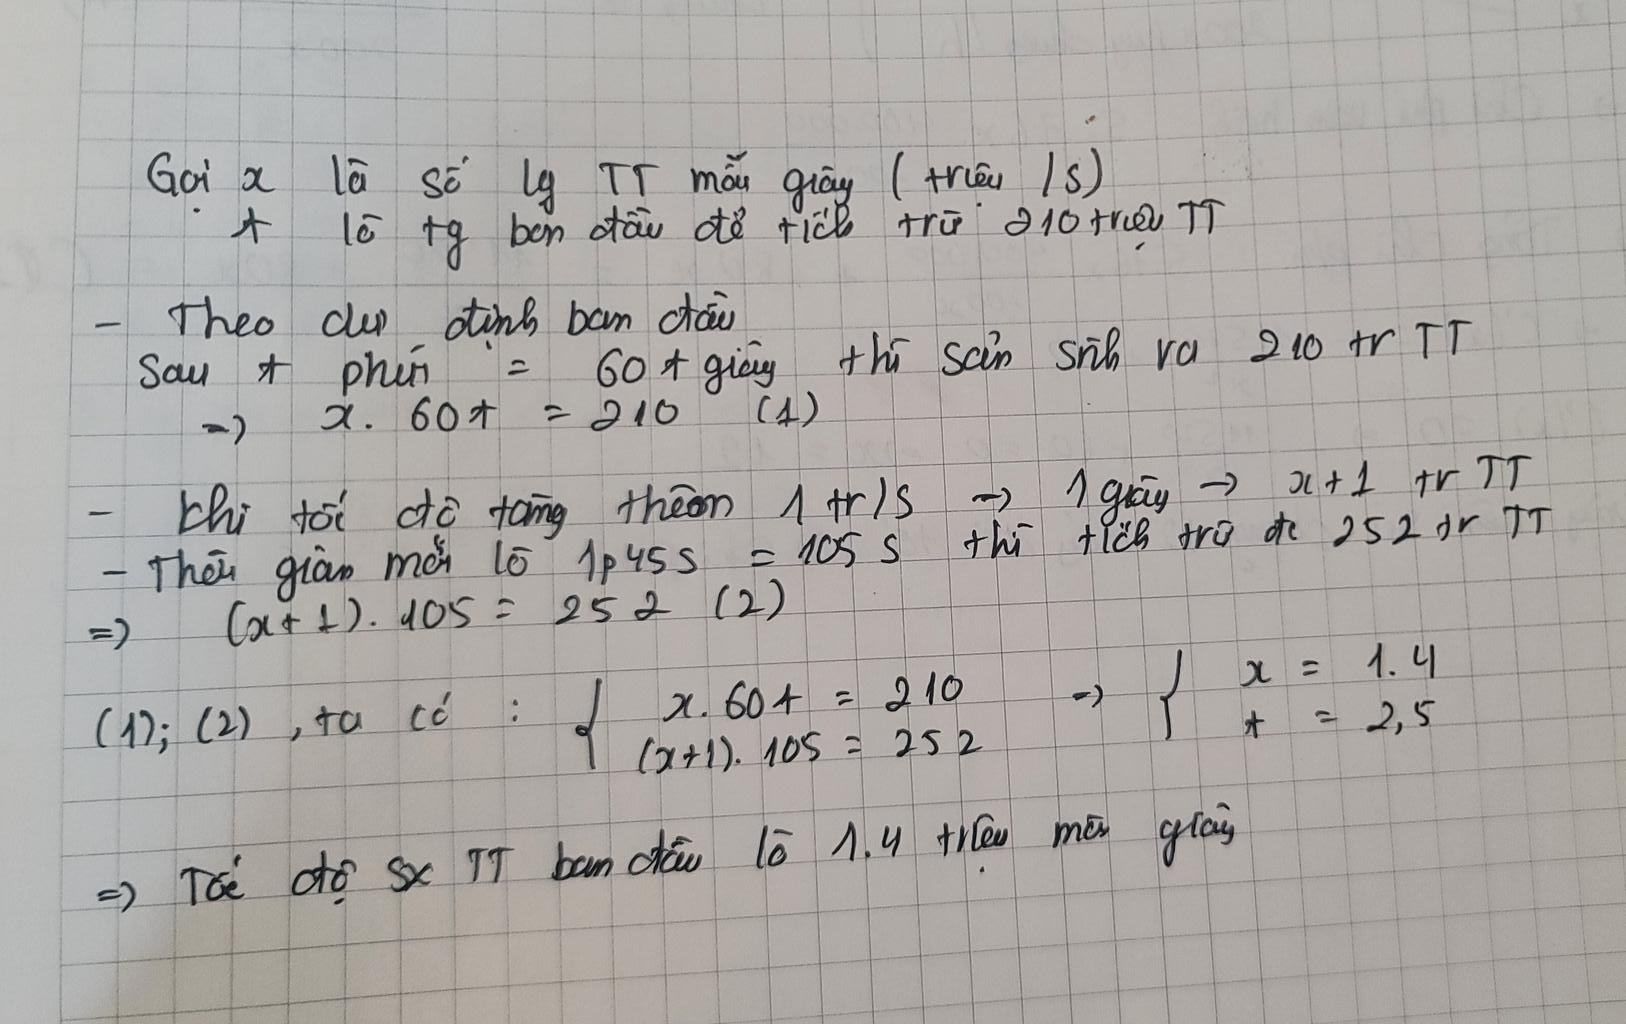 Gọi x là số lg TT mỗi giây (triệu /s)
t là tg ban đầu để tích trữ 210 triệu TT
- Theo dự định ban đầu
Sau t phút = 60t giây thì sản sinh ra 210 tr TT
=> x. 60t = 210 (1)
- Khi tốc độ tăng thêm 1 tr/s -> 1 giây -> x+1 tr TT
- Thời gian mới là 1p45s = 105 s thì tích trữ đc 252 tr TT
=> (x+1). 105 = 252 (2)
(1); (2), ta có : { x. 60t = 210 => { x = 1.4
(x+1). 105 = 252 t = 2,5
=> Tốc độ sx TT ban đầu là 1.4 triệu mỗi giây